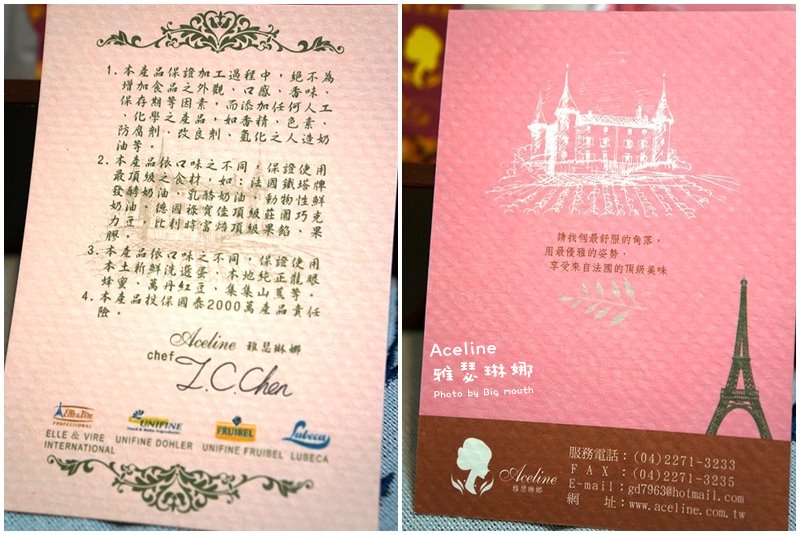 1.本產品保證加工過程中，絕不為
增加食品之外觀、口感、香味、
保存期等因素，而添加任何人工
、化學之產品，如香精、色素、
防腐劑、改良劑、氫化之人造奶
油等。
2.本產品依口味之不同，保證使用
最頂級之食材，如：法國鐵塔牌
發酵奶油、乳酪奶油、動物性鮮
奶油、德國祿寶佳頂級莊園巧克
力豆，比利時富姆頂級果餡、果
膠。
3.本產品依口味之不同，保證使用
本土新鮮洗選蛋、本地純正龍眼
蜂蜜、萬丹紅豆、集集山蕉等。
4.本產品投保國泰2000萬產品責任
險。
Aceline 雅瑟琳娜
chef I.C.Chen
Elle&Vire
PROFESSIONAL
ELLE & VIRE
INTERNATIONAL
UNIFINE
UNIFINE DOHLER
FRUIBEL
UNIFINE FRUIBEL
Lubeca
LUBECA
請找個最舒服的角落，
用最優雅的姿勢，
享受來自法國的頂級美味
Aceline
雅瑟琳娜
Photo by Big mouth
Aceline
雅瑟琳娜
服務電話：(04)2271-3233
FAX：(04)2271-3235
E-mail：gd7963@hotmail.com
網址：www.aceline.com.tw